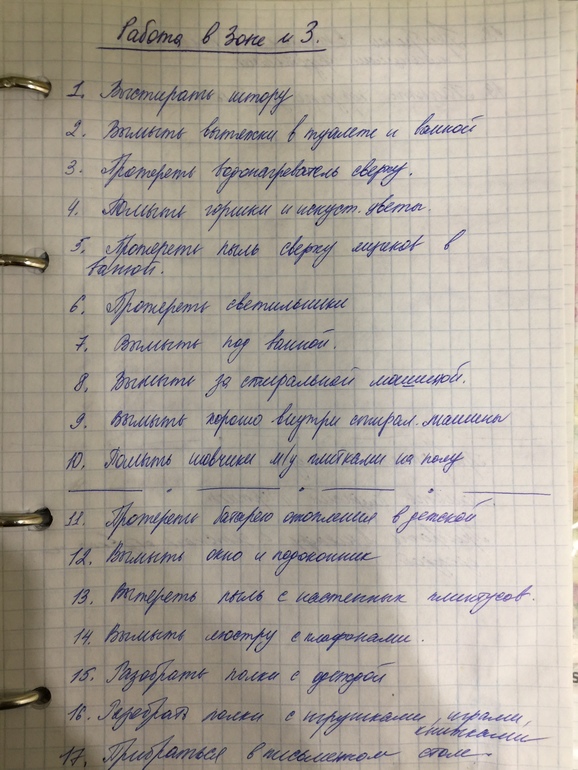 Работа в Зоне № 3.
1. Выстирать штору
2. Вымыть вытяжки в туалете и ванной
3. Протереть водонагреватель сверху.
4. Помыть горшки и искуст. цветы.
5. Протереть пыль сверху ящиков в
ванной.
6. Протереть светильники
7. Вымыть под ванной.
8. Вымыть за стиральной машиной.
9. Вымыть хорошо внутри стирал. машины
10. Помыть шовчики м/у плитками на полу
11. Протереть батарею отопления в детской
12. Вымыть окно и подоконник
13. Вытереть пыль с настенных плинтусов.
14. Вымыть люстру с плафонами.
15. Разобрать полки с одеждой
16. Разобрать полки с игрушками, играми,
книжками
17. Прибраться в письменном столе.